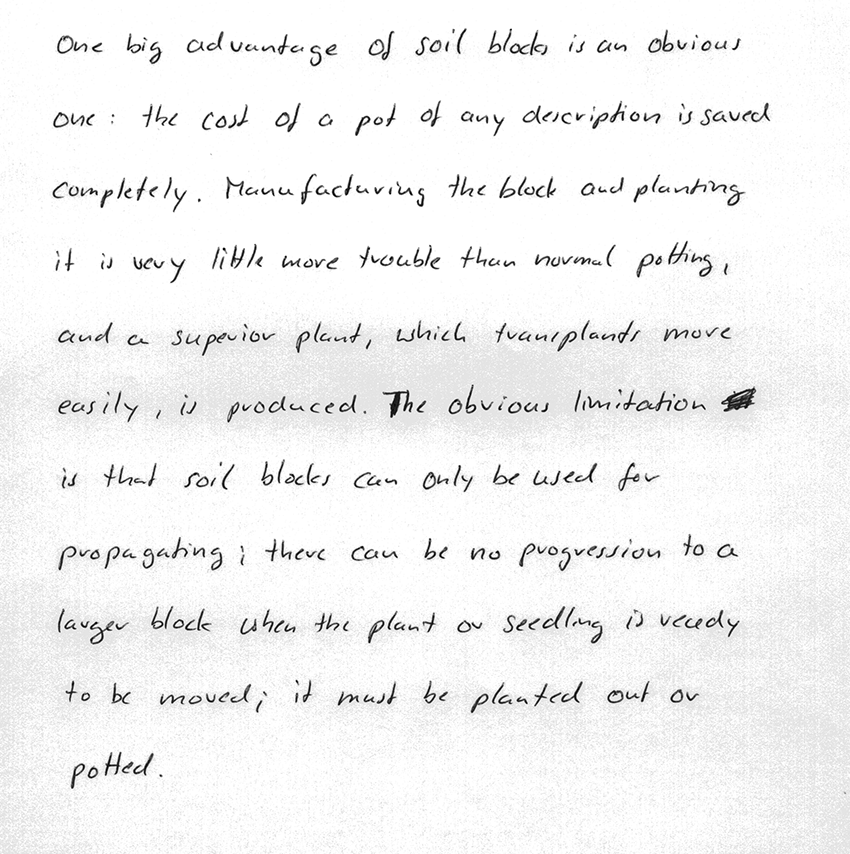 One big advantage of soil blocks is an obvious
one: the cost of a pot of any description is saved
completely. Manufacturing the block and planting
it is very little more trouble than normal potting,
and a superior plant, which transplants more
easily, is produced. The obvious limitation
is that soil blocks can only be used for
propagating; there can be no progression to a
larger block when the plant or seedling is ready
to be moved; it must be planted out or
potted.